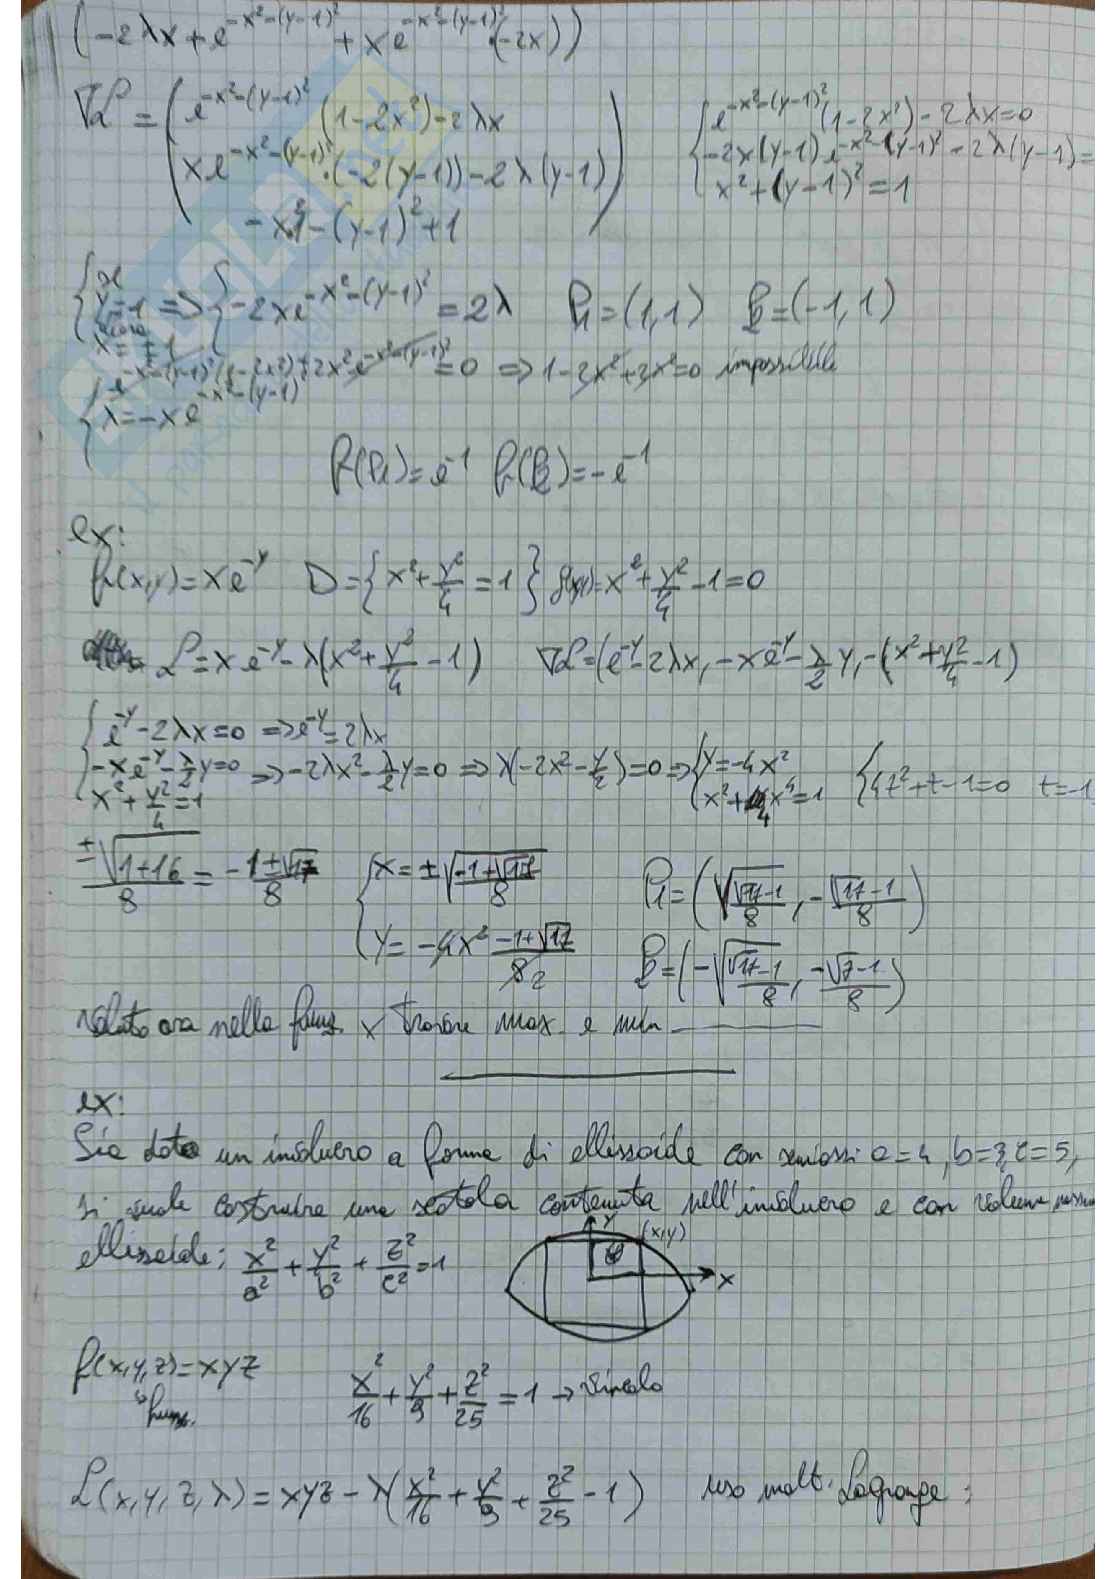 (-2λx + e^{-x²-(y-1)²} + xe^{-x²-(y-1)²}·(-2x))
∇ℒ = ( e^{-x²-(y-1)²} (1-2x²)-2λx
{ e^{-x²-(y-1)²}(1-2x²)-2λx=0
xe^{-x²-(y-1)²}·(-2(y-1))-2λ(y-1) )
-2x(y-1)e^{-x²-(y-1)²}-2λ(y-1)=
-x²-(y-1)²+1
x²+(y-1)²=1
{ y=1 => { -2xe^{-x²-(y-1)²} = 2λ P₁=(1,1) P₂=(-1,1)
x=±1
{ e^{-x²-(y-1)²}(1-2x²)+2x²e^{-x²-(y-1)²}=0 => 1-2x²+2x²=0 impossibile
λ=-xe^{-x²-(y-1)²}
f(P₁)=e^{-1} f(P₂)=-e^{-1}
ex:
f(x,y)=xe^{-y} D={x²+y²/4=1} g(x,y)=x²+y²/4-1=0
ℒ=xe^{-y}-λ(x²+y²/4-1) ∇ℒ=(e^{-y}-2λx, -xe^{-y}-λ/2 y, -(x²+y²/4-1)
{ e^{-y}-2λx=0 => e^{-y}=2λx
-xe^{-y}-λ/2 y=0 => -2λx²-λ/2 y=0 => λ(-2x²-y/2)=0 => { y=-4x²
x²+y²/4=1
x²+4x⁴=1 { 4t²+t-1=0 t=-1
±√(1+16)/8 = -1±√17/8
{ x=±√(-1+√17/8)
P₁=(√(√17-1/8), -√17-1/8)
y=-4x² -1+√17/8 2
P₂=(-√(√17-1/8), -√7-1/8)
Valuto ora nella funz. x trovare max e min
ex:
Sia dato un involucro a forma di ellissoide con semiassi a=4, b=3, c=5,
si vuole costruire una scatola contenuta nell'involucro e con volume massimo
ellissoide; x²/a² + y²/b² + z²/c² = 1
y
(x,y)
x
f(x,y,z)=xyz
x²/16 + y²/9 + z²/25 = 1 → vincolo
funz.
ℒ(x,y,z,λ)=xyz-λ(x²/16 + y²/9 + z²/25 - 1) uso molt. Lagrange: